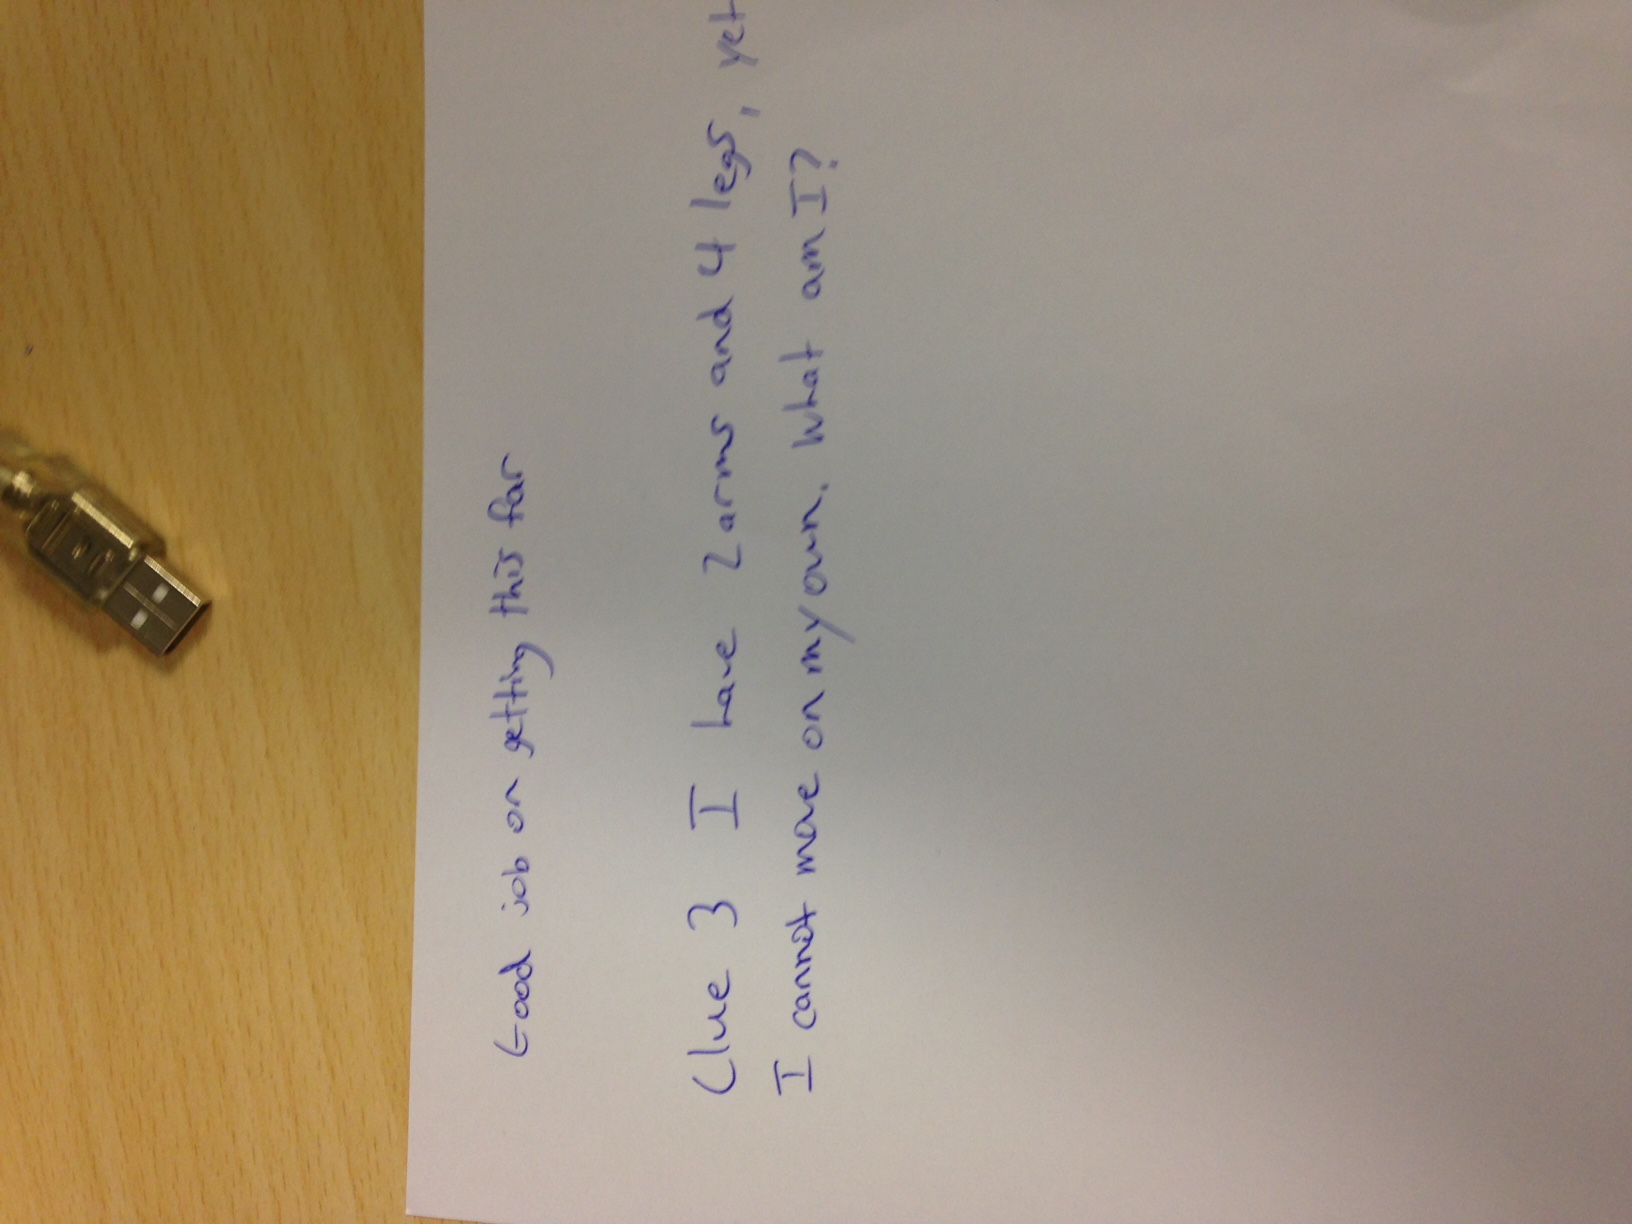 Good job on getting this far
Clue 3 I have 2 arms and 4 legs, yet
I cannot move on my own. What am I?